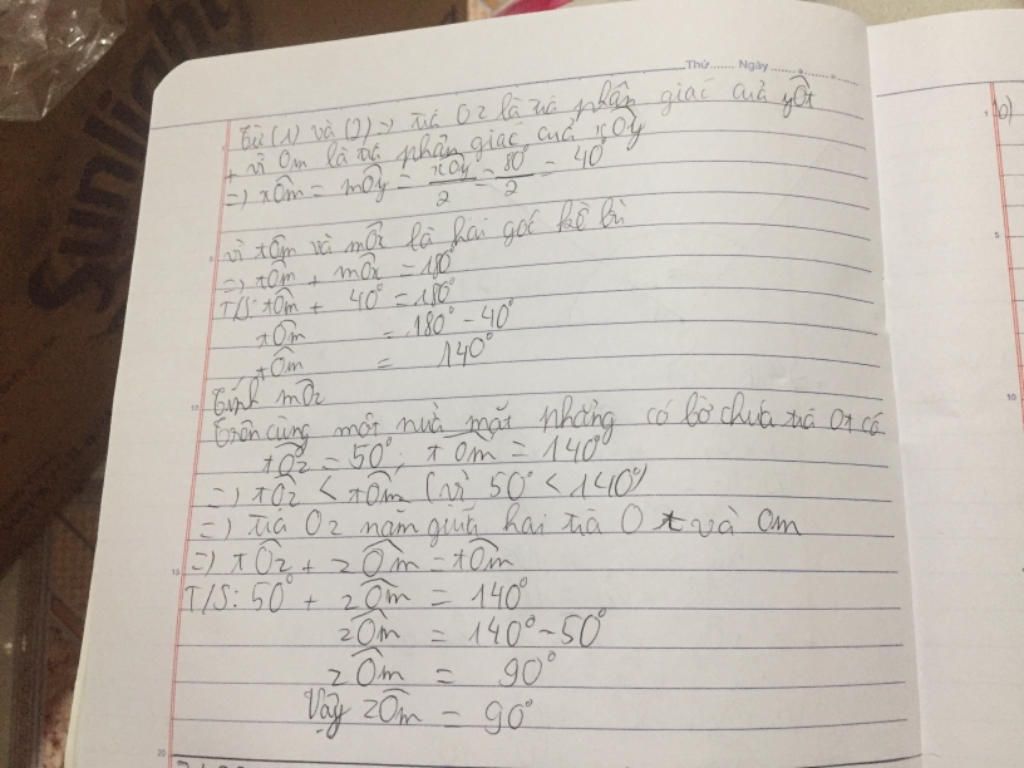 Sunlight
Thứ....... Ngày.......
Từ (1) và (2) => tia Oz là tia phân giác của yÔt
+ vì Om là tia phân giác của xÔy
=> xÔm = mÔy = xÔy/2 = 80°/2 = 40°
vì tÔm và mÔx là hai góc kề bù
=> tÔm + mÔx = 180°
T/S: tÔm + 40° = 180°
tÔm = 180° - 40°
tÔm = 140°
Tính mÔz
Trên cùng một nửa mặt phẳng có bờ chứa tia Ot có
tÔz = 50°; tÔm = 140°
=> tÔz < tÔm (vì 50° < 140°)
=> tia Oz nằm giữa hai tia Ot và Om
=> tÔz + zÔm = tÔm
T/S: 50° + zÔm = 140°
zÔm = 140° - 50°
zÔm = 90°
Vậy zÔm = 90°
5
10
15
20
b)
5
10